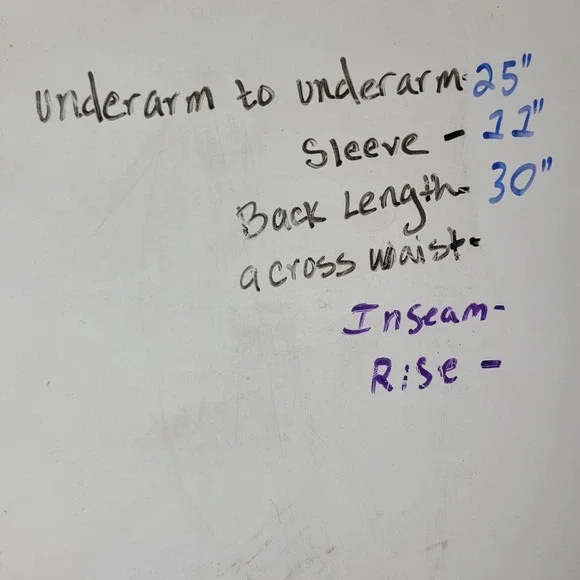 underarm to underarm- 25"
Sleeve - 11"
Back Length- 30"
across waist-
Inseam-
Rise -